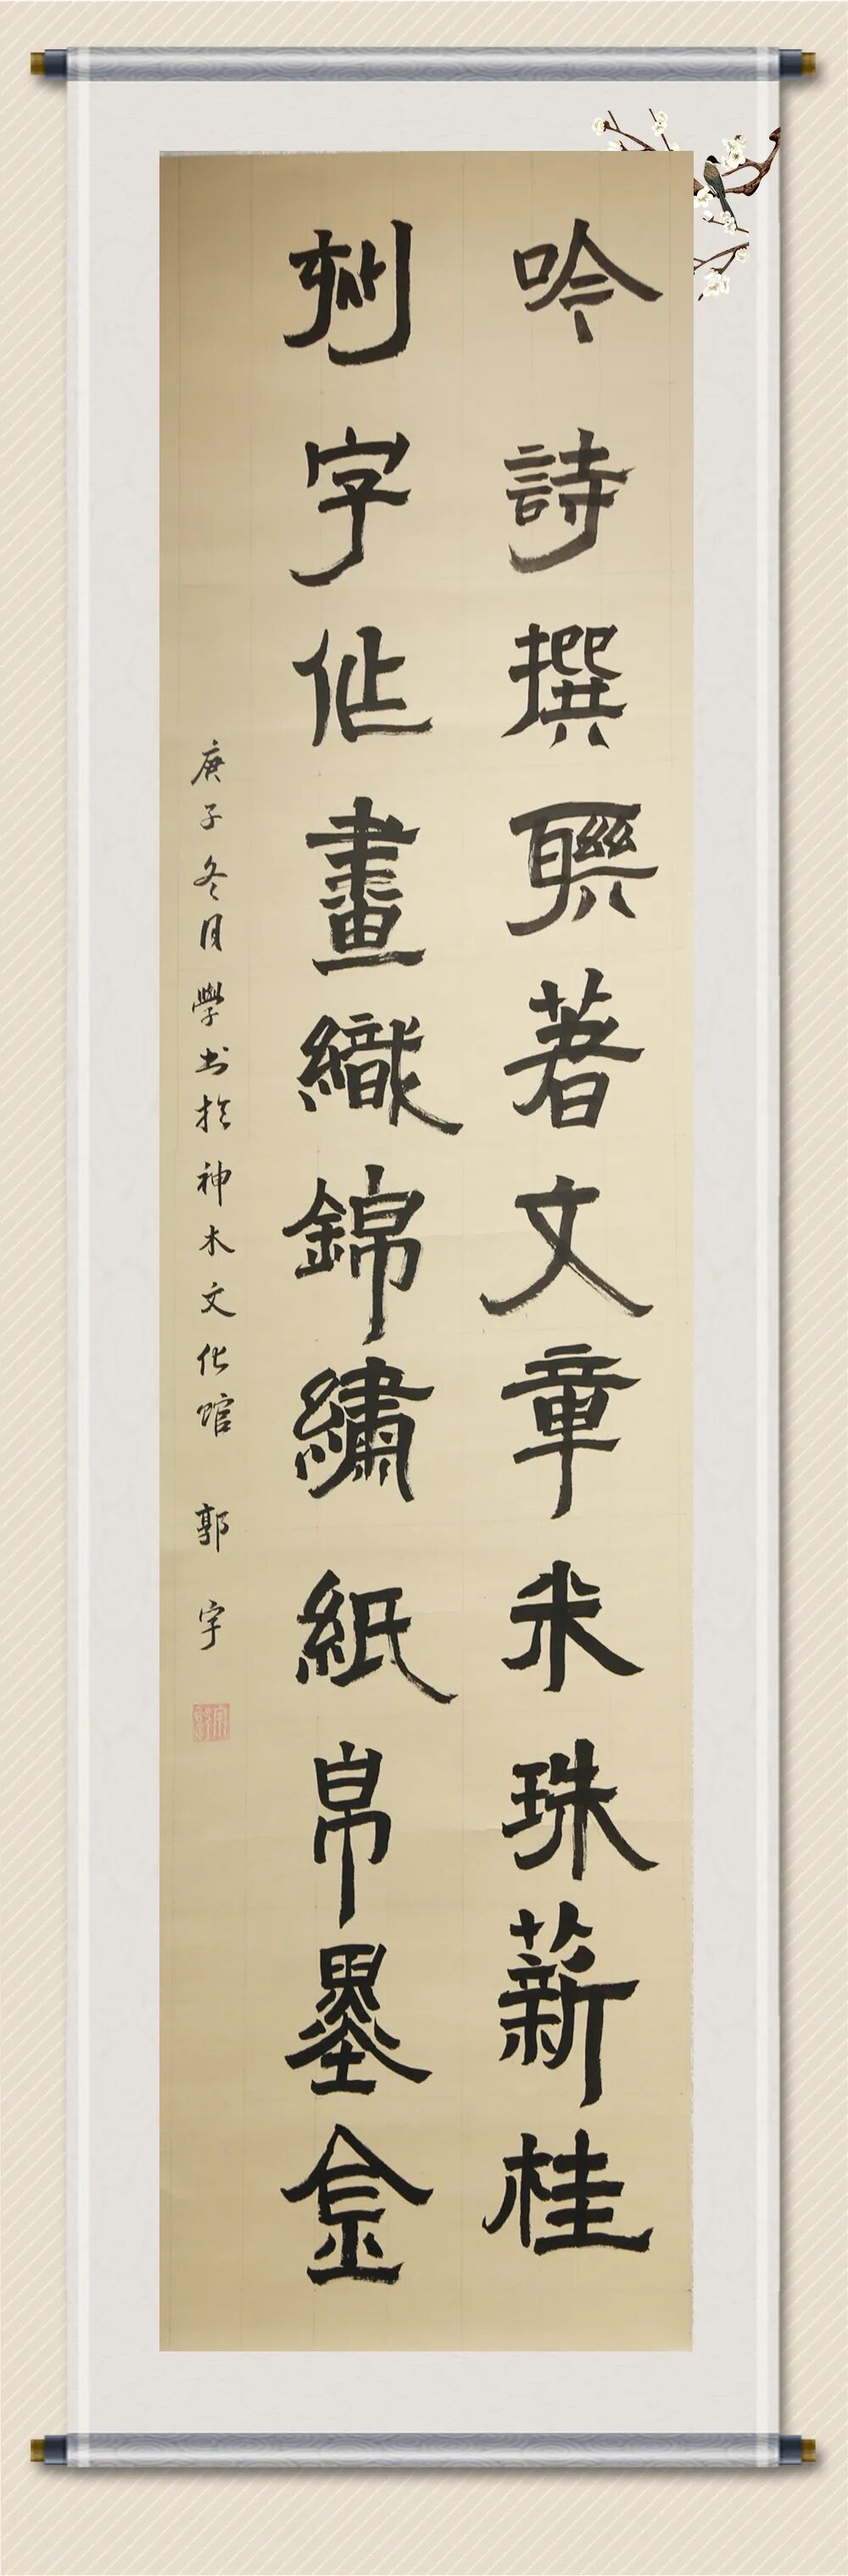 吟詩撰聯著文章米珠薪桂
刻字作畫織錦繡紙帛墨金
庚子冬月學书於神木文化馆 郭宇